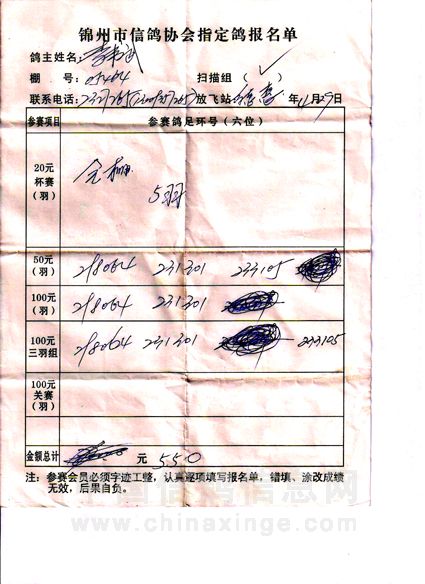 锦州市信鸽协会指定鸽报名单
鸽主姓名：
棚 号：05464 扫描组（✓）
联系电话： 放飞站 年11月29日
参赛项目 参赛鸽足环号（六位）
20元
杯赛
（羽）
全棚
5羽
50元
（羽） 218064 231301 233105
100元
（羽） 218064 231301
100元
三羽组 218064 231301 233105
100元
关赛
（羽）
金额总计 元 550
注：参赛会员必须字迹工整，认真逐项填写报名单，错填、涂改成绩
无效，后果自负。
中国信鸽信息网
www.chinaxinge.com